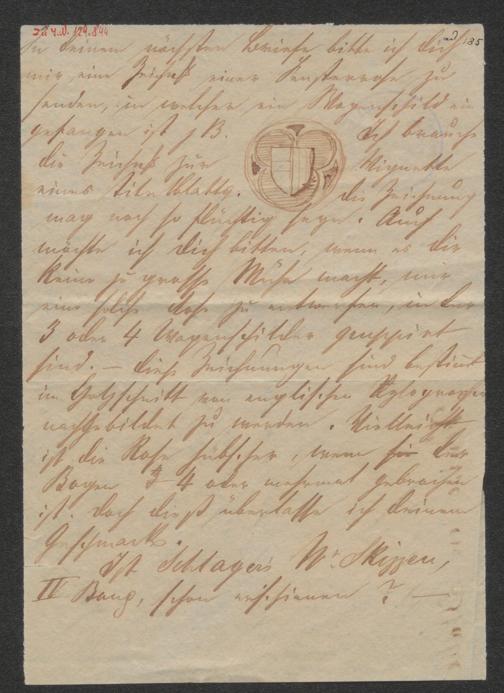 zu H.N. 129.844
185
In deinem nächsten Briefe bitte ich dich
mir eine Zeichnß einer Fensterrose zu
senden, in welcher ein Wapenschild ein
gefangen ist z B. Ich brauche
die Zeichnß zur Vignette
eines Titelblatts. die Zeichnung
mag noch so flüchtig seyn. Auch
möchte ich dich bitten, wenn es dir
keine zu grosse Mühe macht, mir
eine solche Rose zu entwerfen, in der
3 oder 4 Wapenschilder gruppirt
sind. — diese Zeichnungen sind bestimt
im Holzschnitt von englischen Xylographen
nachgebildet zu werden. Vielleicht
ist die Rose hübscher, wenn der
Bogen 4 oder mehrmal gebrochen
ist. Doch dieß überlasse ich deinem
Geschmack.
Ist Schlager's Wr Skizzen,
IV Band, schon erschienen? —